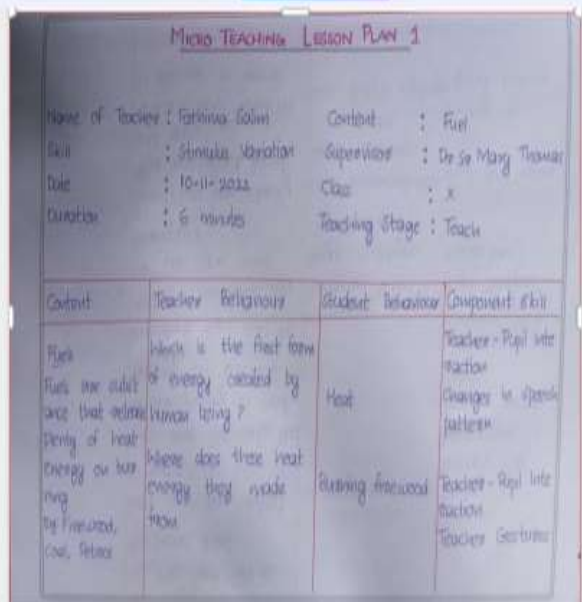 MICRO TEACHING LESSON PLAN 1
Name of Teacher : Fathima Salim
Content : Fuel
Skill : Stimulus Variation
Supervisor : Dr Sr Mary Thomas
Date : 10-11-2022
Class : X
Duration : 6 minutes
Teaching Stage : Teach
Content
Teacher Behaviour
Student Behaviour
Component Skill
Fuels
Fuels are subst
ance that
plenty of heat
energy on bur
ning
Eg Firewood,
Coal, Petrol
Which is the first form
of energy created by
human being ?
Where does these heat
energy they made
from
Heat
Burning firewood
Teacher - Pupil inte
raction
Changes in speech
pattern
Teacher - Pupil Inte
raction
Teacher Gestures